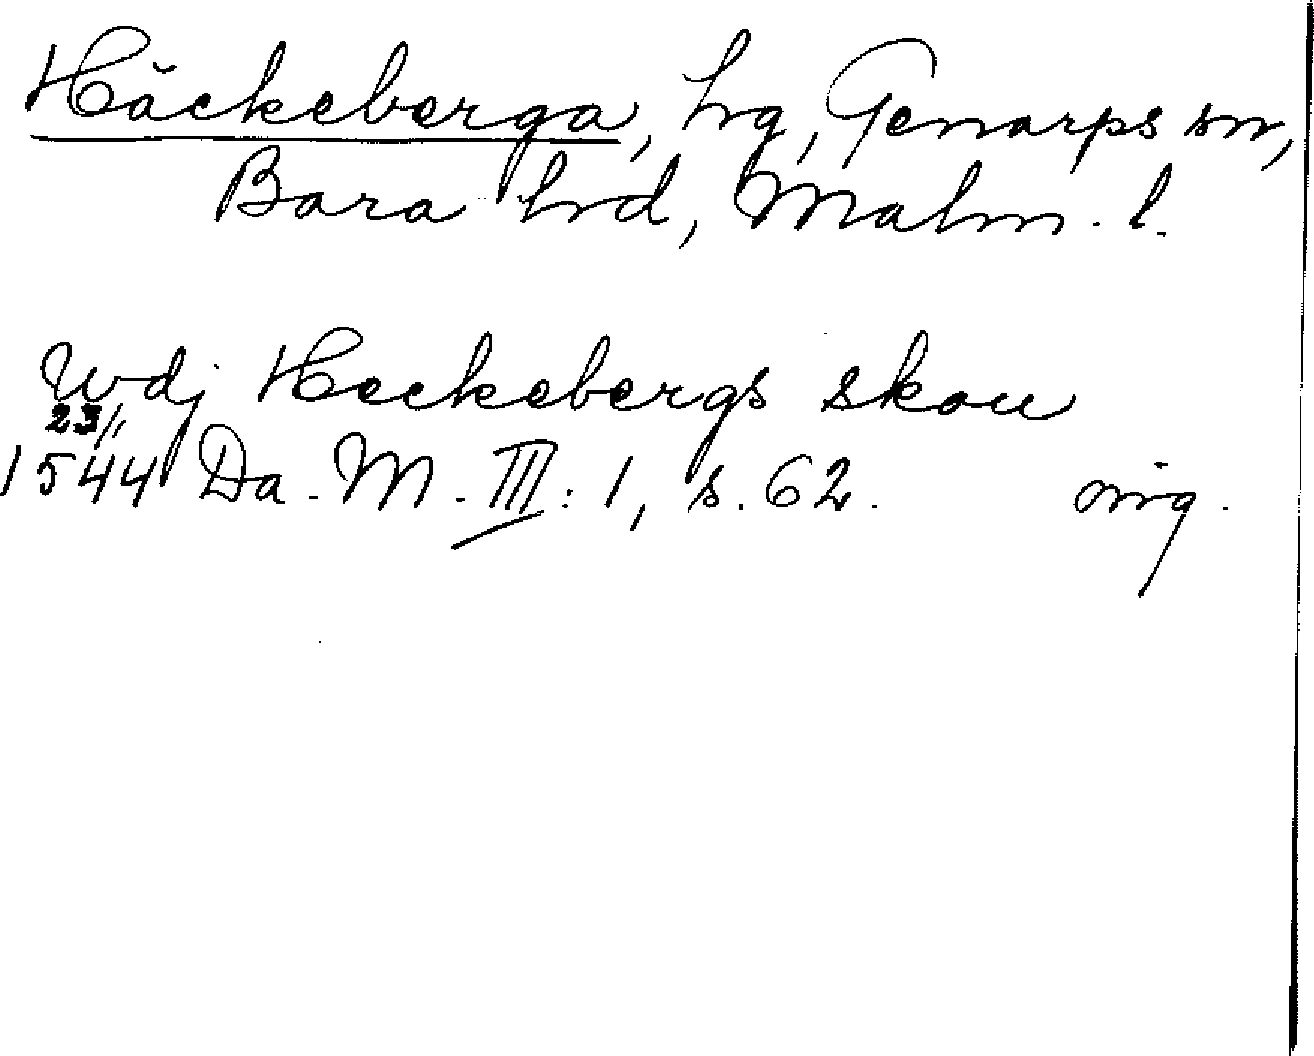 Häckeberga, hrg, Genarps sn,
Bara hrd, Malm. l.
Wdj Heckebergs skou
23/1
1544 Da. M. III: 1, s. 62.